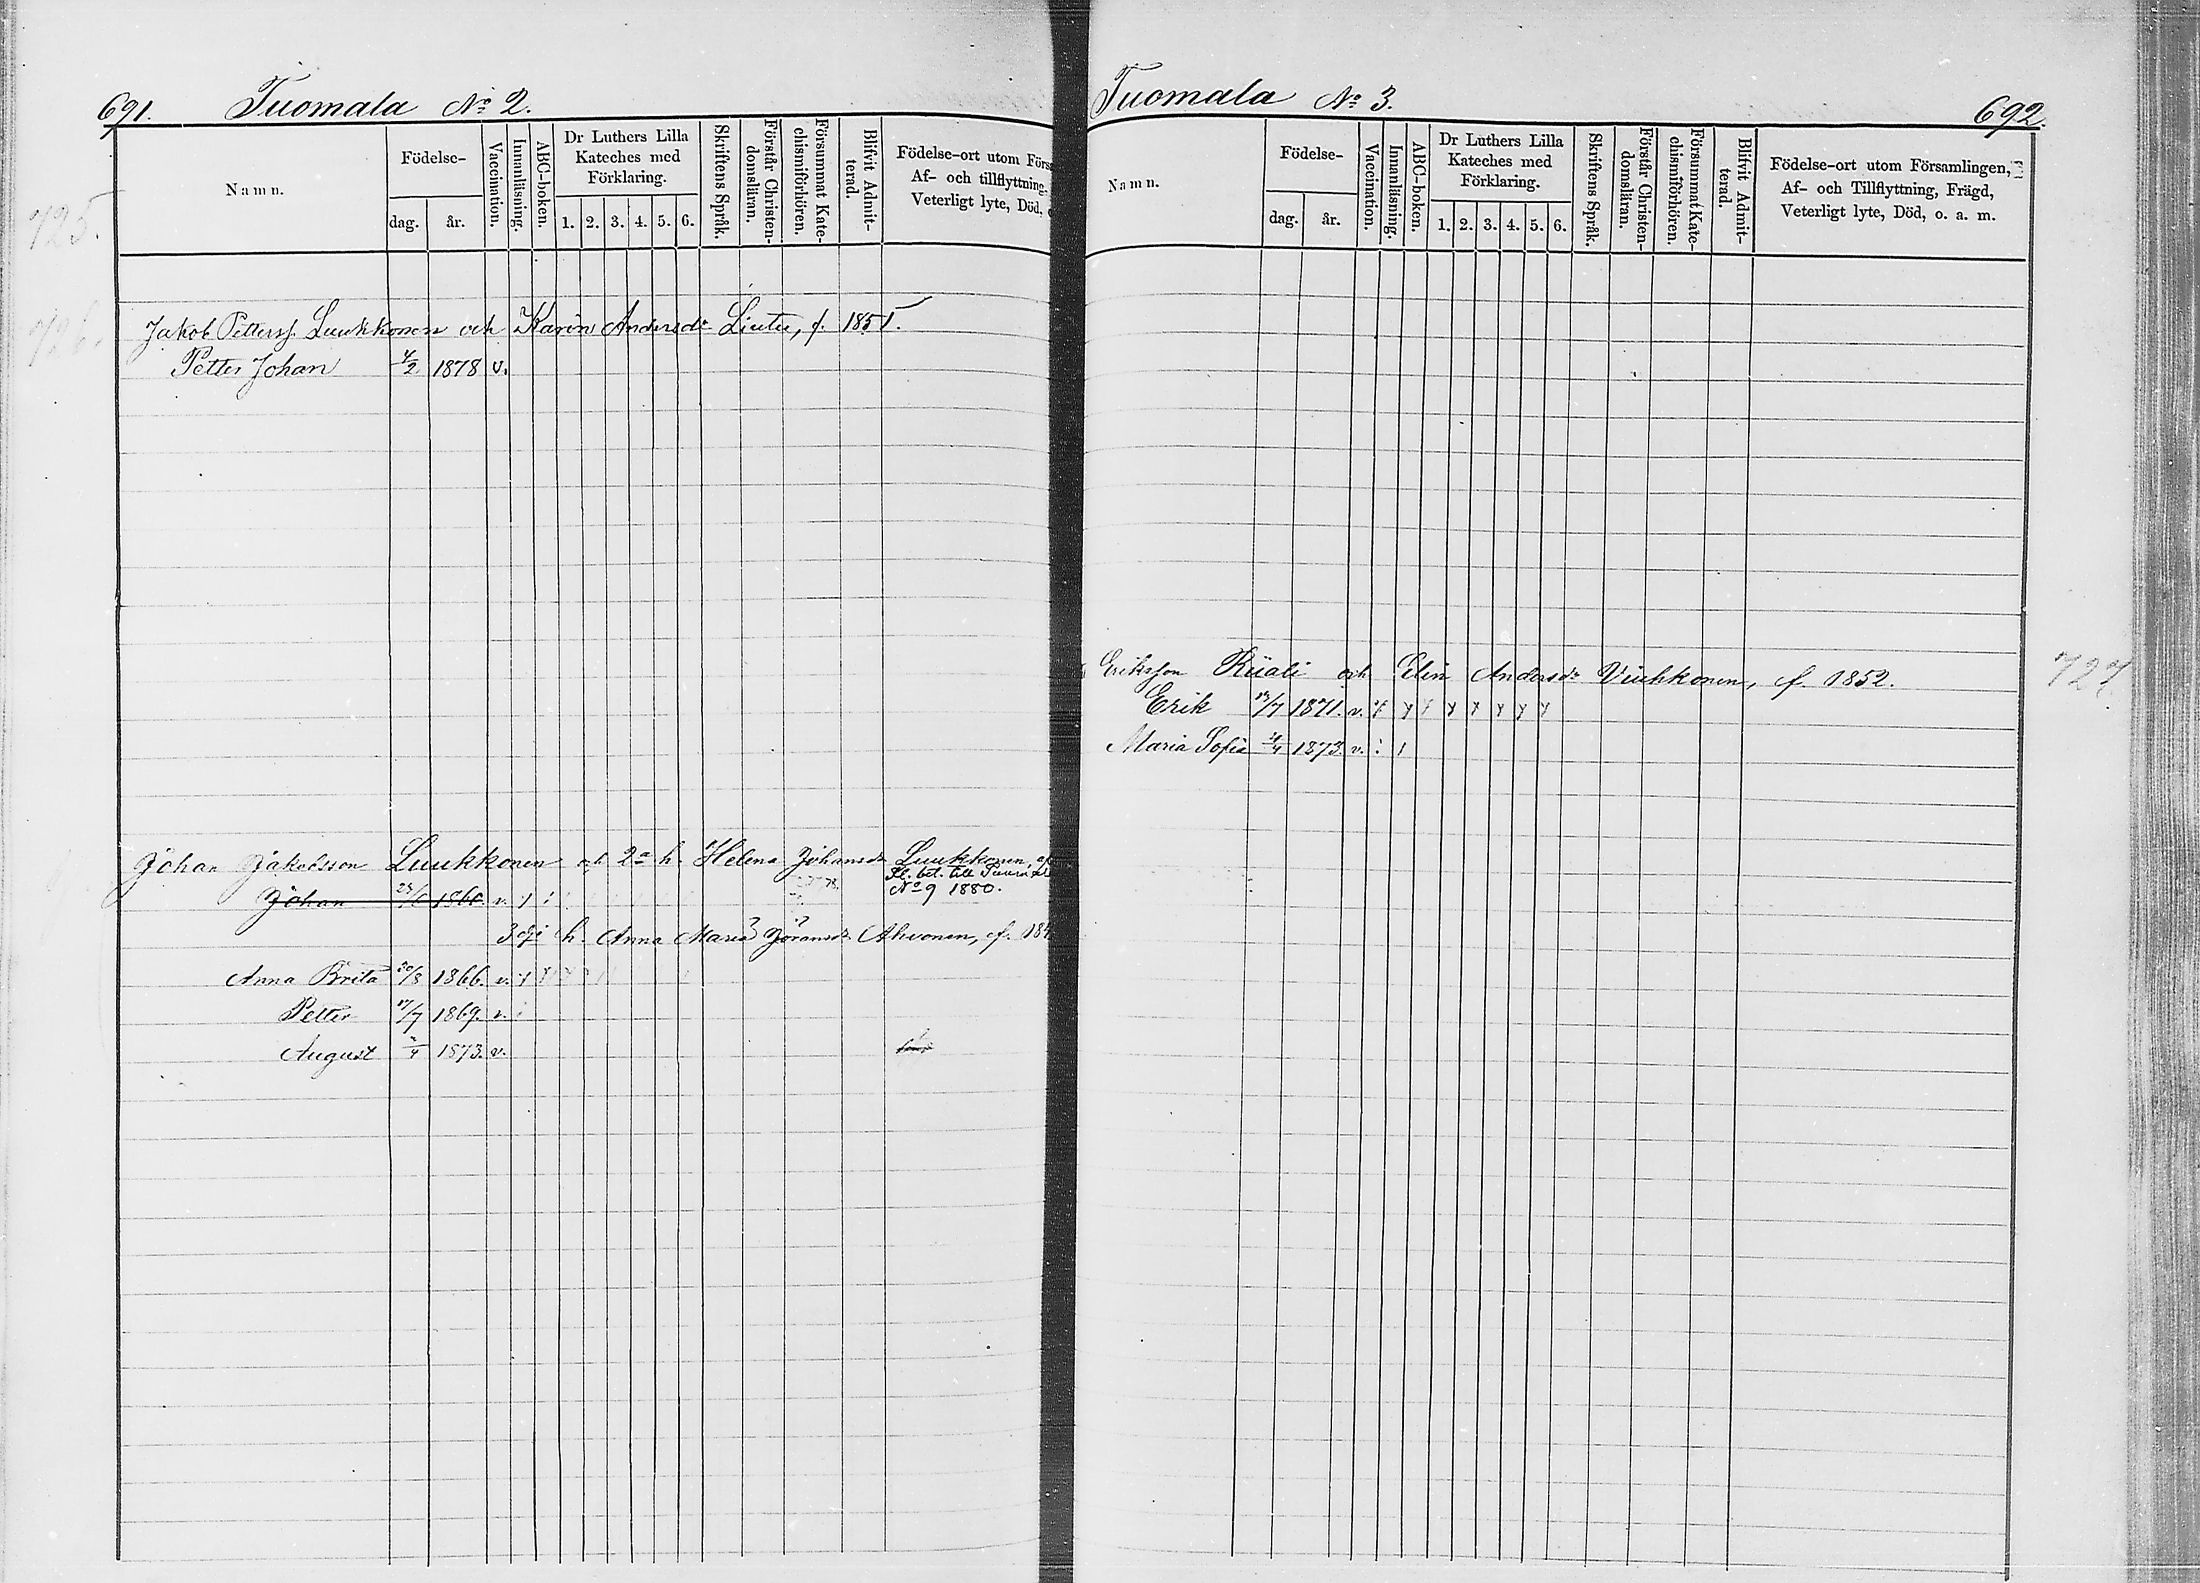 691. Tuomala No 2.
Namn.
Födelse-
dag. år.
Vaccination.
Innanläsning.
ABC-boken.
Dr Luthers Lilla
Kateches med
Förklaring.
1. 2. 3. 4. 5. 6.
Skriftens Språk.
Förstår Christen-
domsläran.
Försummat Kate-
chismiförhören.
Blifvit Admit-
terad.
Födelse-ort utom Förs
Af- och tillflyttning,
Veterligt lyte, Död,
725.
726.
Jakob Petterss. Luukkonen och Karin Andersdr Liutu, f. 1851.
Petter Johan 4/2 1878 v.
Johan Jakobsson Luukkonen och 2a h. Helena Johansdr Luukkonen,
Fl. bet. till
No 9 1880.
Johan 1860. v.
3dje h. Anna Maria Göransdr Ahvonen, f. 18
Anna Brita 20/8 1866. v.
Petter 17/7 1869. v.
August 1873. v.
Tuomala No 3. 692.
Namn.
Födelse-
dag. år.
Vaccination.
Innanläsning.
ABC-boken.
Dr Luthers Lilla
Kateches med
Förklaring.
1. 2. 3. 4. 5. 6.
Skriftens Språk.
Förstår Christen-
domsläran.
Försummat Kate-
chismiförhören.
Blifvit Admit-
terad.
Födelse-ort utom Församlingen,
Af- och Tillflyttning, Frägd,
Veterligt lyte, Död, o. a. m.
Eriksson Riiali och Elin Andersdr Viuhkonen, f. 1852.
727.
Erik 1871. v.
Maria Sofia 1873. v.